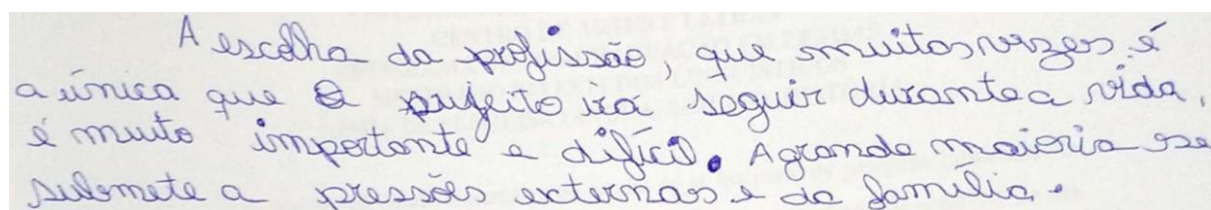 A escolha da profissão, que muitas vezes é
a única que o sujeito irá seguir durante a vida,
é muito importante e difícil. A grande maioria se
submete a pressões externas e da família.